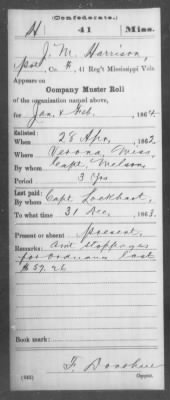 (Confederate.)
H 41 Miss.
J. M. Harrison,
Co. K, 41 Reg't Mississippi Vols
Appears on
Company Muster Roll
of the organization named above,
for Jan & Feb, 1864.
Enlisted:
When 28 Apr, 1862.
Where Verona, Miss.
By whom Capt. Nelson
Period 3 Yrs
Last paid:
By whom Capt. Lockhart,
To what time 31 Dec, 1863.
Present or absent Present
Remarks: Amt stoppages
for ordnance lost
$57.26
Book mark:
F. Donohue
(642) Copyist.